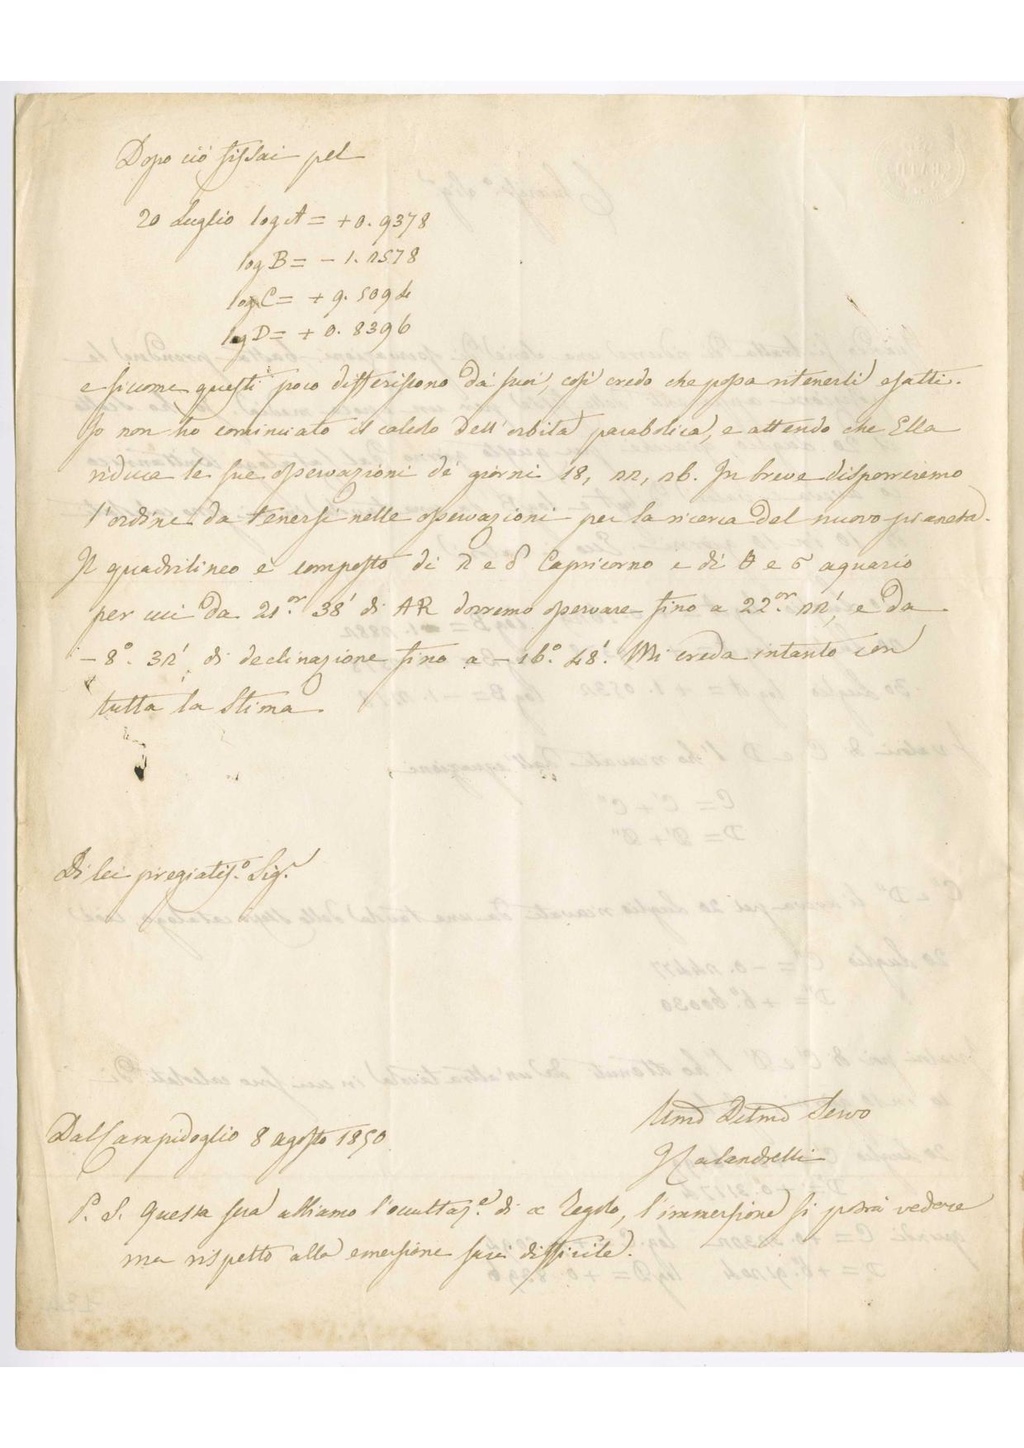 Dopo ciò fissai pel
20 Luglio log A = +0.9378
log B = - 1.2578
log C = + 9.5092
log D = + 0.8396
e siccome questi poco differiscono da' suoi, così credo che possa ritenerli esatti.
Io non ho cominciato il calcolo dell'orbita parabolica, e attendo che Ella
riduca le sue osservazioni de' giorni 18, 22, 26. In breve disporremo
l'ordine da tenersi nelle osservazioni per la ricerca del nuovo pianeta.
Il quadrilineo è composto di η e δ Capricorno e di θ e σ aquario
per cui da 21.or 38' di AR dovremo osservare fino a 22.or 22', e da
- 8°. 32' di declinazione fino a - 16°. 48'. Mi creda intanto con
tutta la stima.
Di lei pregiatis.o Sig.r
Umo Devmo Servo
Dal Campidoglio 8 agosto 1850
I Calandrelli
P. S. Questa sera abbiamo l'occultaz.e di α Regolo, l'immersione si potrà vedere
ma rispetto alla emersione sarà difficile.